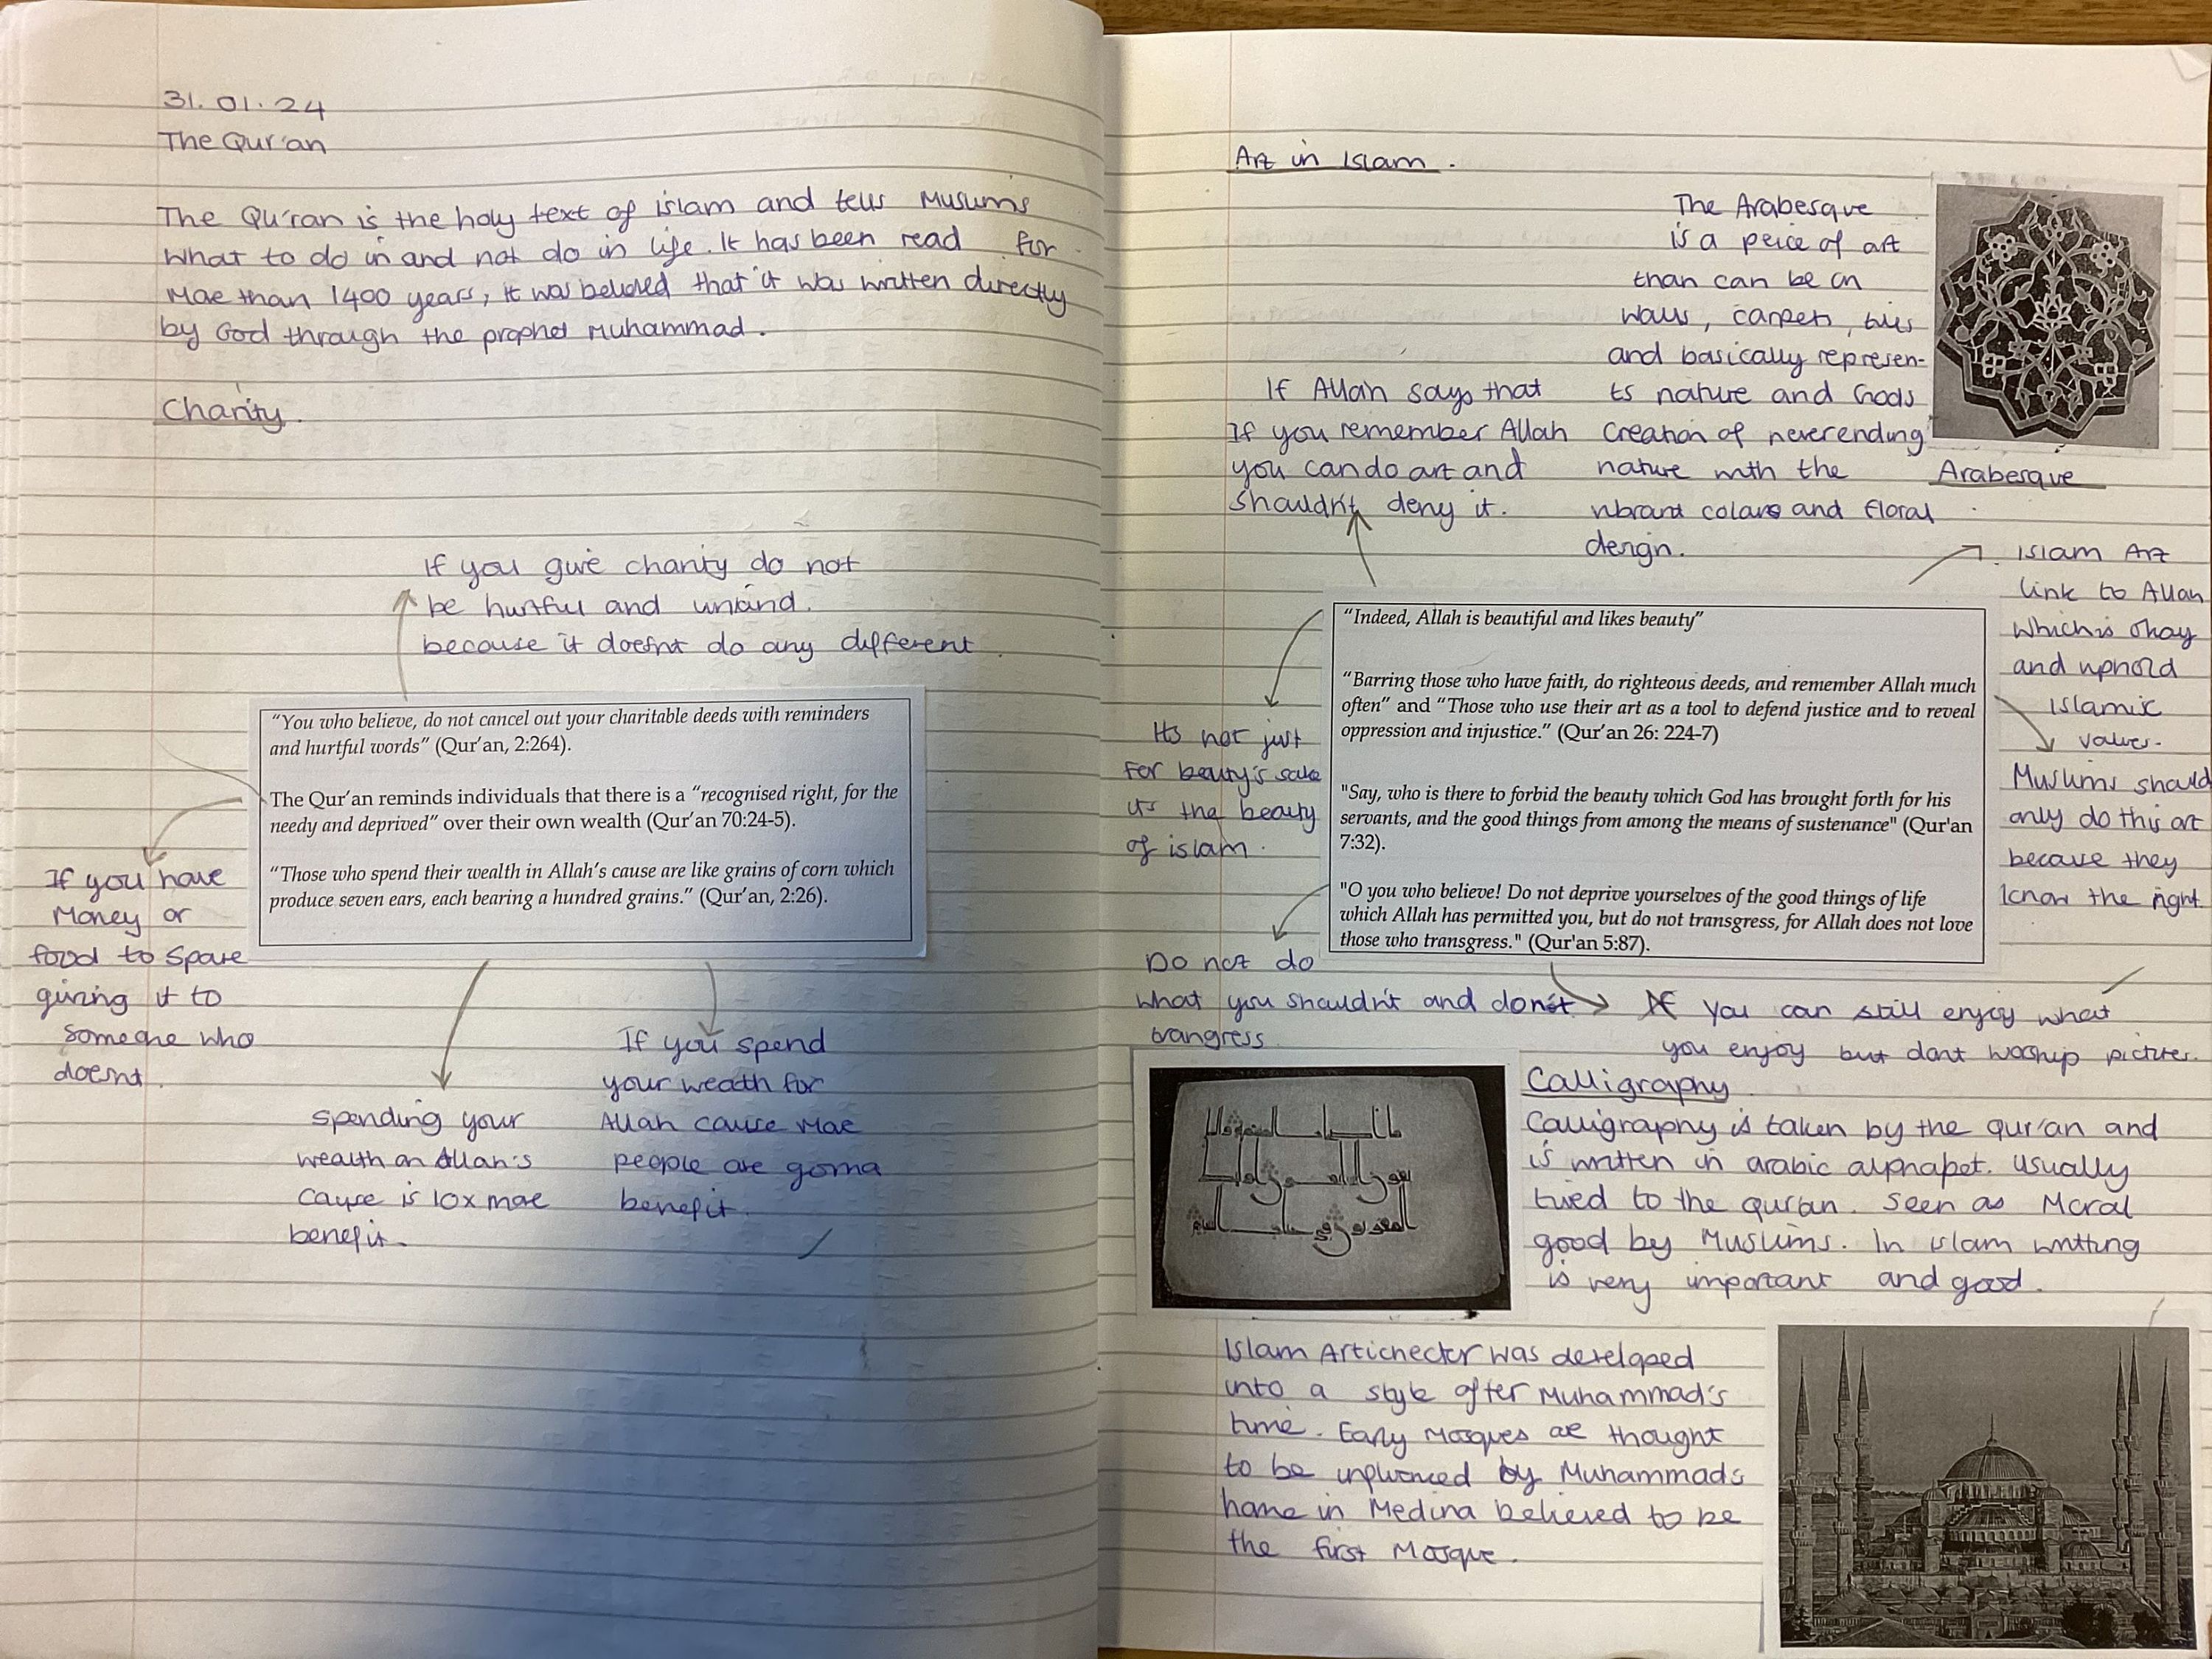 31.01.24
The Qur'an
The Qu'ran is the holy text of islam and tells Muslims
What to do in and not do in life. It has been read for
More than 1400 years, it was belived that it was written directly
by God through the prophet Muhammad.
Charity.
If you give charity do not
be hurtful and unkind.
because it doesnt do any different
"You who believe, do not cancel out your charitable deeds with reminders
and hurtful words" (Qur'an, 2:264).
The Qur'an reminds individuals that there is a "recognised right, for the
needy and deprived" over their own wealth (Qur'an 70:24-5).
"Those who spend their wealth in Allah's cause are like grains of corn which
produce seven ears, each bearing a hundred grains." (Qur'an, 2:26).
If you have
Money or
food to spare
giving it to
someone who
doesnt.
Spending your
wealth on Allah's
cause is 10x more
benefit.
If you spend
your weath for
Allah cause More
people are gonna
benefit.
Art in Islam.
The Arabesque
is a peice of art
than can be on
walls, carpets, tiles
and basically represen-
ts nature and Gods
creation of neverending
nature with the
vibrant colors and floral
design.
Arabesque
If Allah says that
If you remember Allah
you can do art and
Shouldn't deny it.
Islam Art
link to Allah
Which is okay
and uphold
islamic
values.
Muslims should
only do this art
because they
know the right
"Indeed, Allah is beautiful and likes beauty"
"Barring those who have faith, do righteous deeds, and remember Allah much
often" and "Those who use their art as a tool to defend justice and to reveal
oppression and injustice." (Qur'an 26: 224-7)
"Say, who is there to forbid the beauty which God has brought forth for his
servants, and the good things from among the means of sustenance" (Qur'an
7:32).
"O you who believe! Do not deprive yourselves of the good things of life
which Allah has permitted you, but do not transgress, for Allah does not love
those who transgress." (Qur'an 5:87).
Its not just
for beauty's sake
its the beauty
of islam.
Do not do
what you shouldn't and don't
trangress
You can still enjoy what
you enjoy but dont worship pictures.
Calligraphy
Calligraphy is taken by the qur'an and
is written in arabic alphabet. Usually
tied to the quran. Seen as Moral
good by Muslims. In islam writting
is very important and good.
Islam Artichector was developed
into a style after Muhammad's
time. Early Mosques are thought
to be influenced by Muhammads
home in Medina believed to be
the first Mosque.